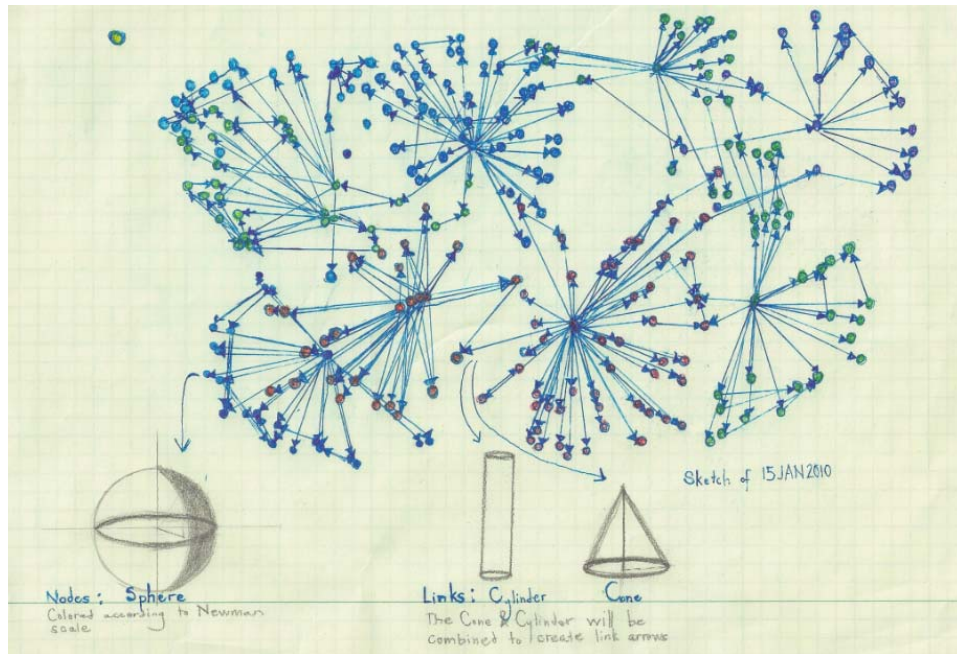 Sketch of 15JAN2010
Nodes: Sphere
Colored according to Newman
scale
Links: Cylinder Cone
The Cone & Cylinder will be
combined to create link arrows